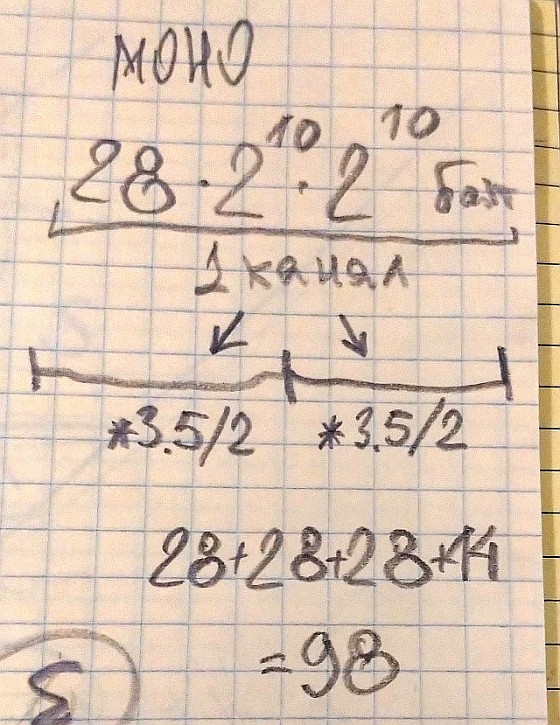 моно
28·2¹⁰·2¹⁰ байт
1 канал
*3.5/2 *3.5/2
28+28+28+14
=98